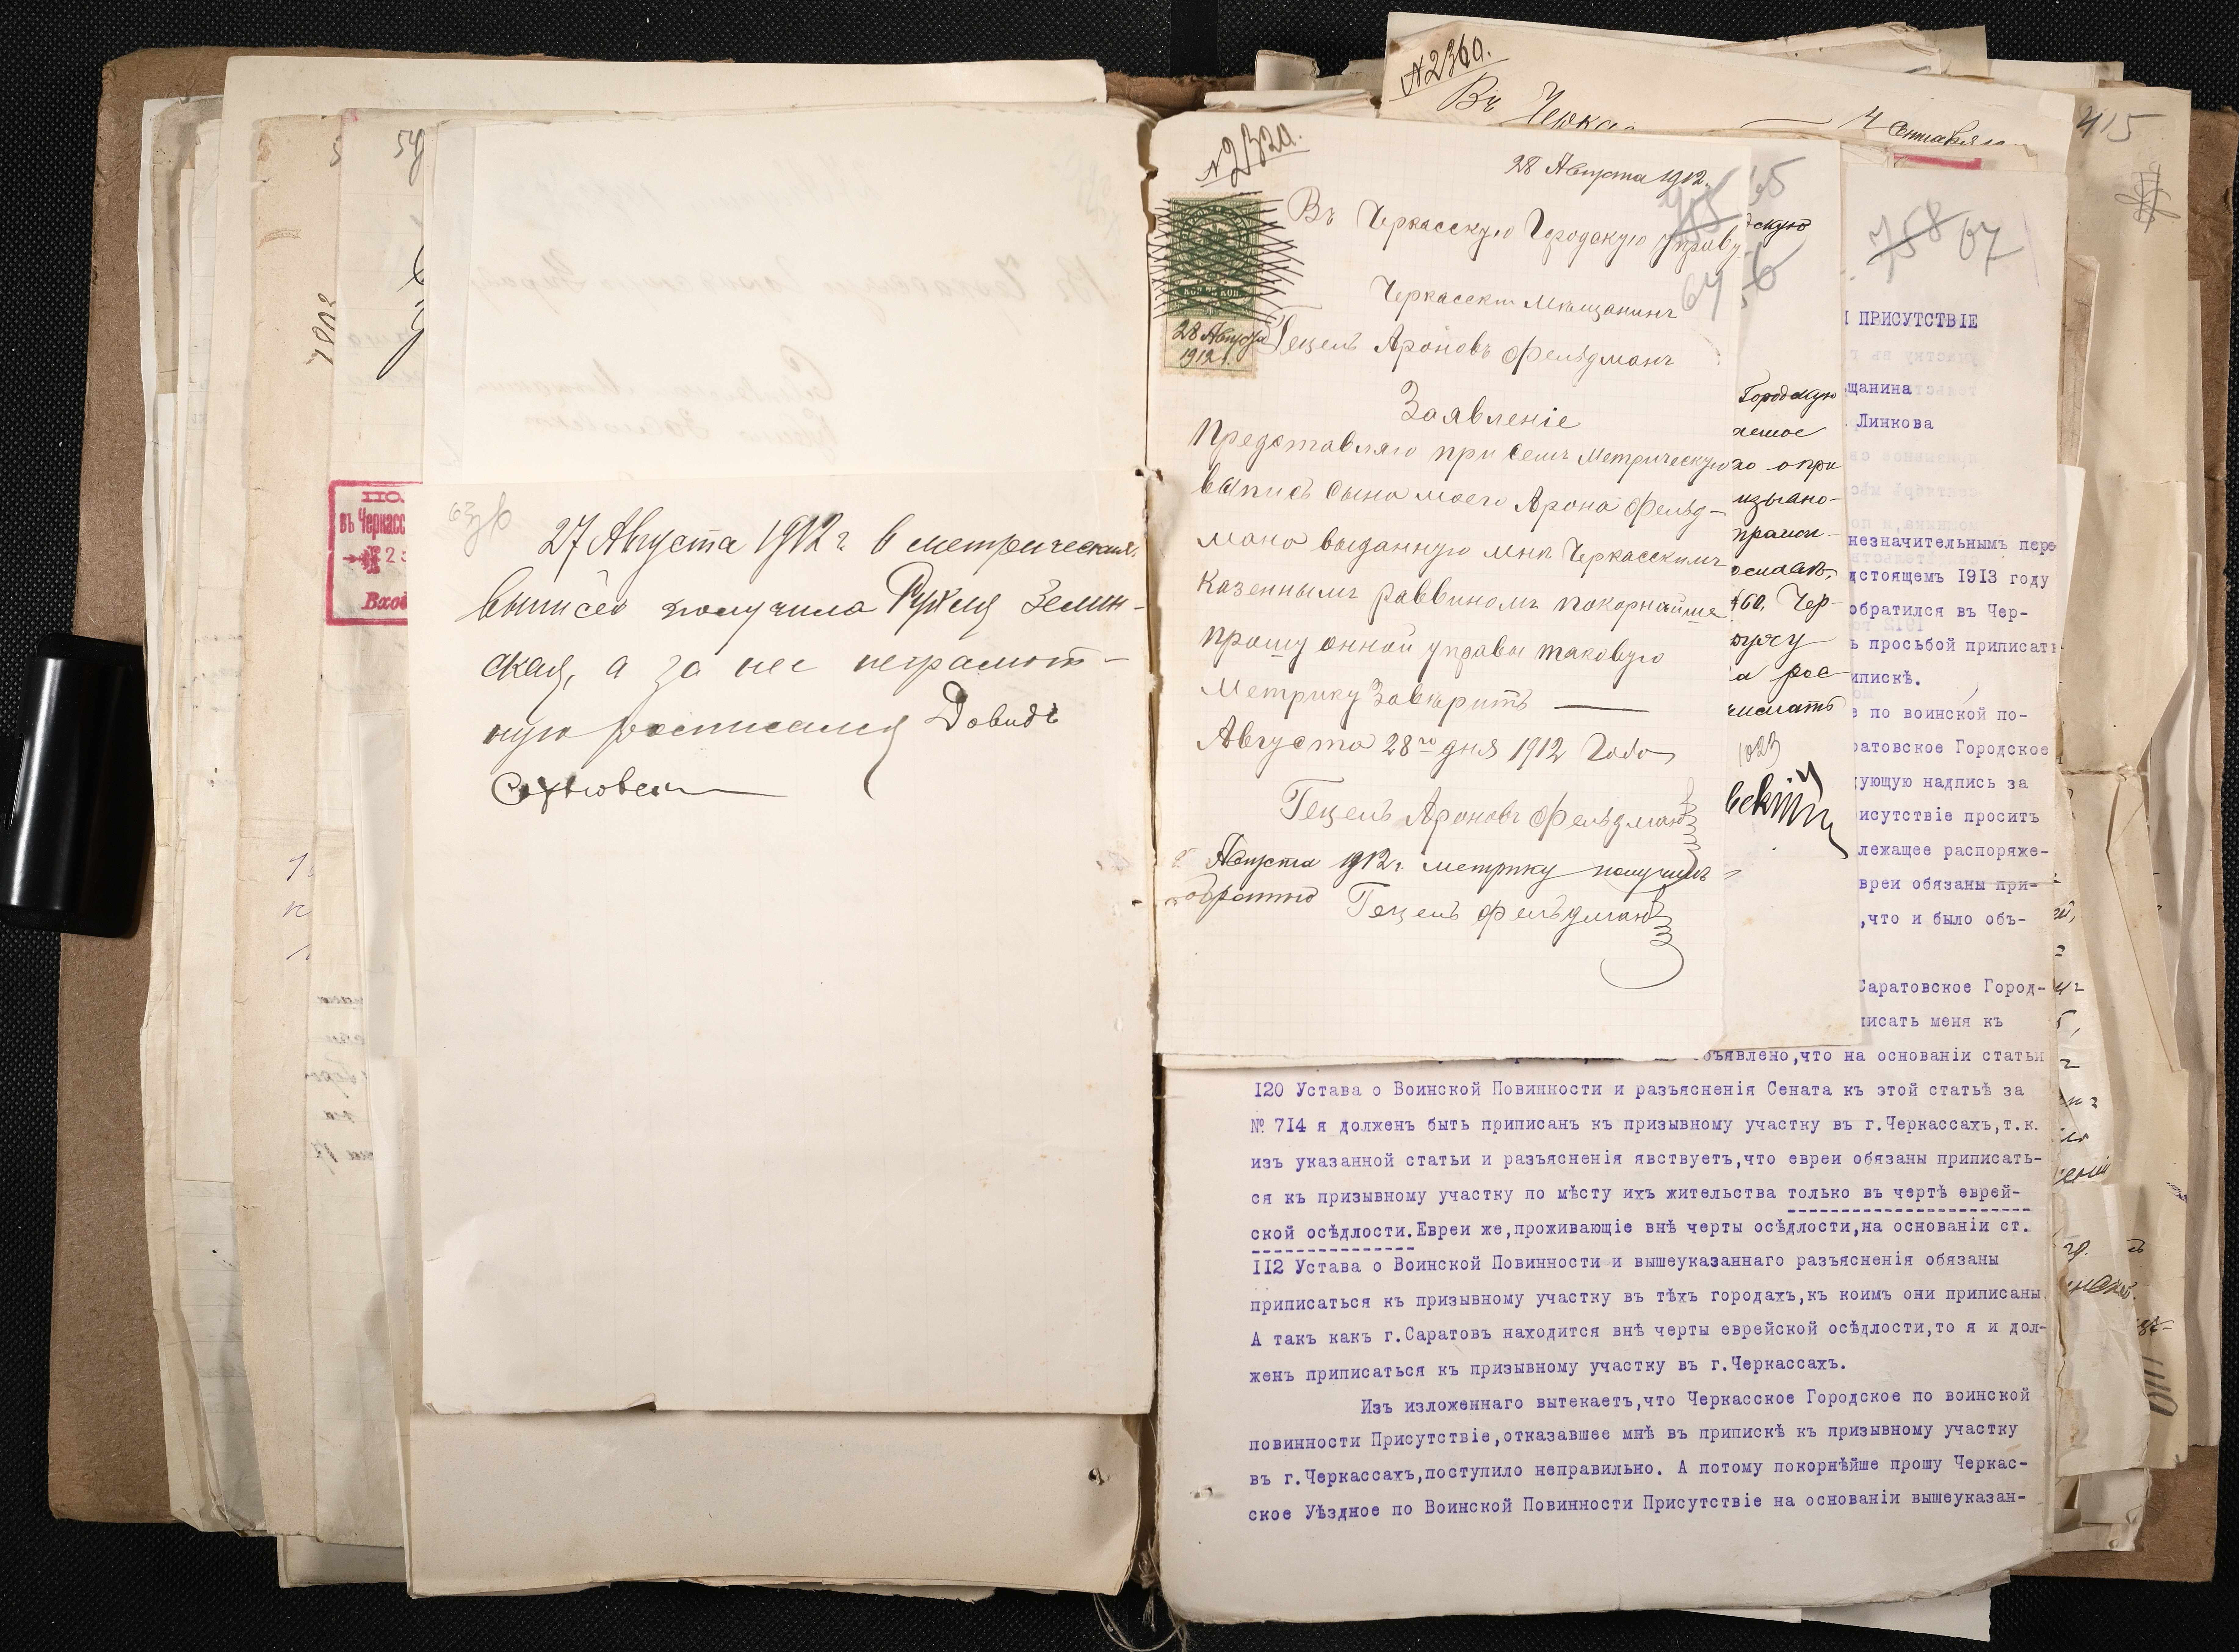 27 Августа 1912 г. в метрическия
выписи получила Рухля Зелин-
ская, а за нее неграмот-
ную росписался Довидъ
№ 2360.
Въ
4 Сентября
415
№ 2320.
28 Августа 1912.
Въ Черкасскую Городскую управу
64
Черкасскій Мѣщанинъ
28 Августа
1912 г.
Гецель Ароновъ Фельдманъ
Заявленіе
Представляю при семъ Метрическую
выпись сына моего Арона Фельд-
мана выданную мнѣ Черкасскимъ
Казеннымъ раввиномъ покорнейше
прошу онной управы таковую
Метрику Заверить
Августа 28го дня 1912 Года
Гецель Ароновъ Фельдманъ
Августа 1912 г. метрику получилъ
обратно Гецель Фельдманъ
65
скую
Городскую
758 67
ПРИСУТСТВІЕ
щанина
Линкова
незначительнымъ пере
дстоящемъ 1913 году
обратился въ Чер-
ъ просьбой приписать
ипискѣ.
е по воинской по-
ратовское Городское
дующую надпись за
рисутствіе проситъ
лежащее распоряже-
вреи обязаны при-
,что и было объ-
Саратовское Город-
писать меня къ
объявлено,что на основаніи статьи
120 Устава о Воинской Повинности и разъясненія Сената къ этой статьѣ за
№ 714 я долженъ быть приписанъ къ призывному участку въ г.Черкассахъ,т.к.
изъ указанной статьи и разъясненія явствуетъ,что евреи обязаны приписать-
ся къ призывному участку по мѣсту ихъ жительства только въ чертѣ еврей-
ской осѣдлости.Евреи же,проживающіе внѣ черты осѣдлости,на основаніи ст.
112 Устава о Воинской Повинности и вышеуказаннаго разъясненія обязаны
приписаться къ призывному участку въ тѣхъ городахъ,къ коимъ они приписаны.
А такъ какъ г.Саратовъ находится внѣ черты еврейской осѣдлости,то я и дол-
женъ приписаться къ призывному участку въ г.Черкассахъ.
Изъ изложеннаго вытекаетъ,что Черкасское Городское по воинской
повинности Присутствіе,отказавшее мнѣ въ припискѣ къ призывному участку
въ г.Черкассахъ,поступило неправильно. А потому покорнѣйше прошу Черкас-
ское Уѣздное по Воинской Повинности Присутствіе на основаніи вышеуказан-